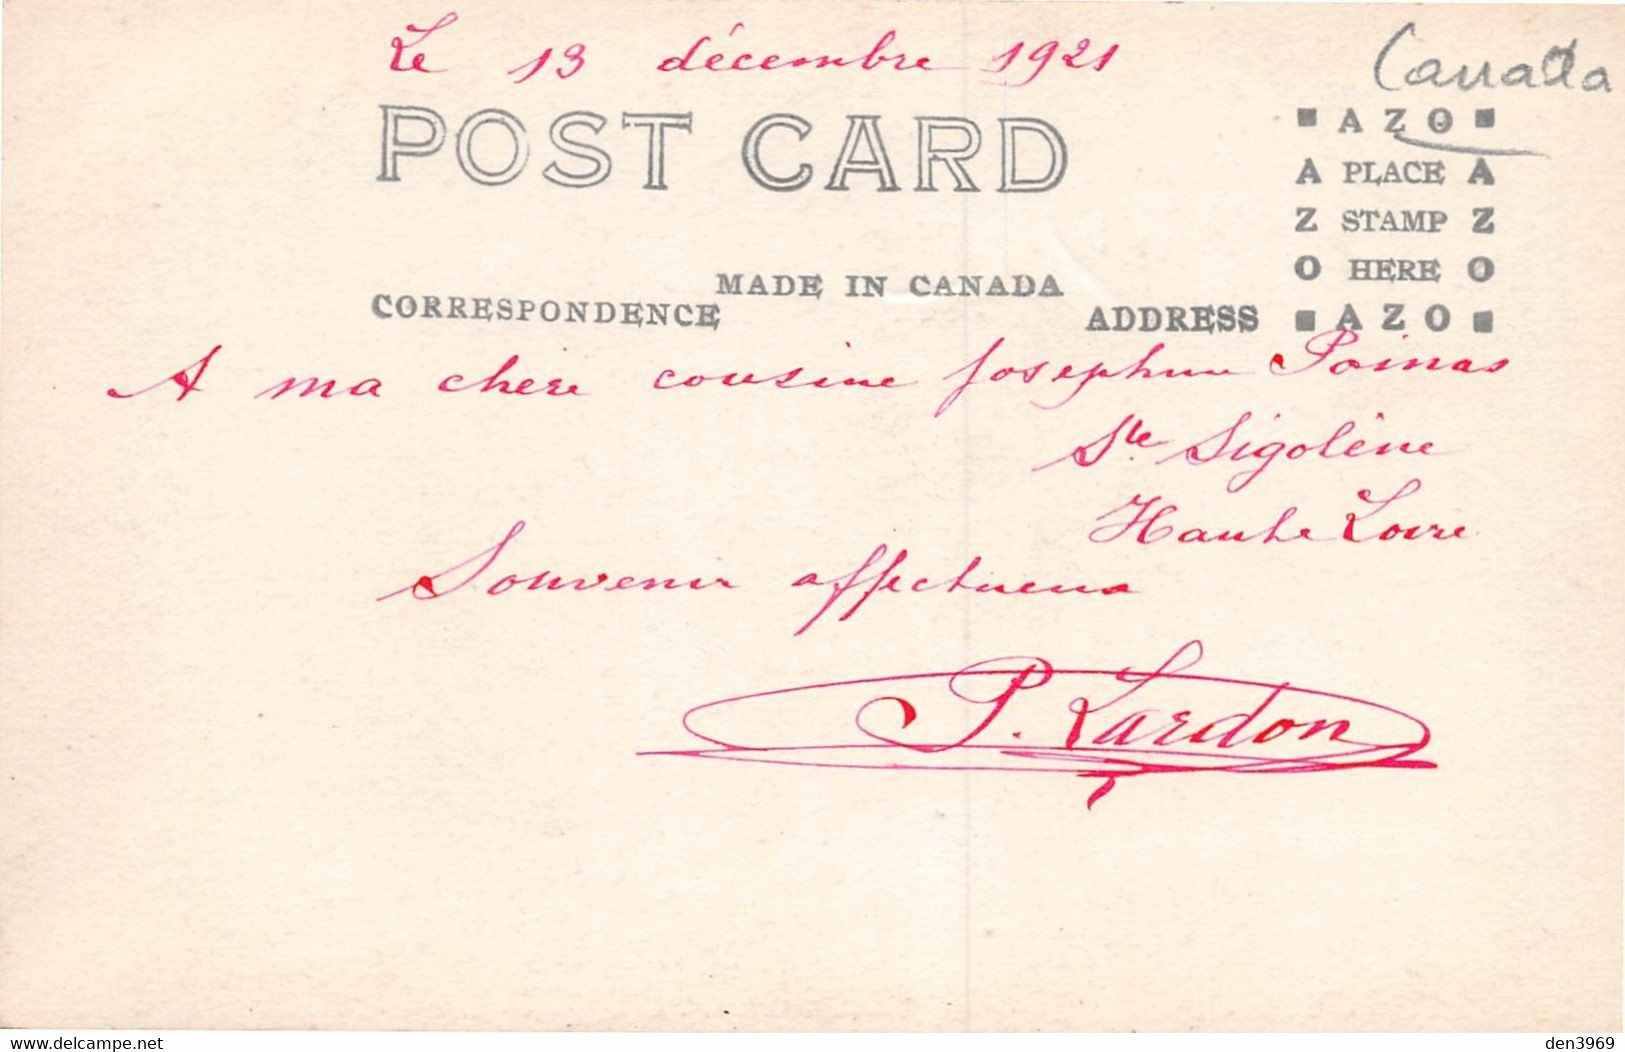 Le 13 décembre 1921
Canada
POST CARD
AZO
A PLACE A
Z STAMP Z
O HERE O
AZO
MADE IN CANADA
CORRESPONDENCE
ADDRESS
A ma chere cousine Josephine Poinas
Ste Sigolène
Haute Loire
Souvenir affectueux
P. Lardon
www.delcampe.net
den3969